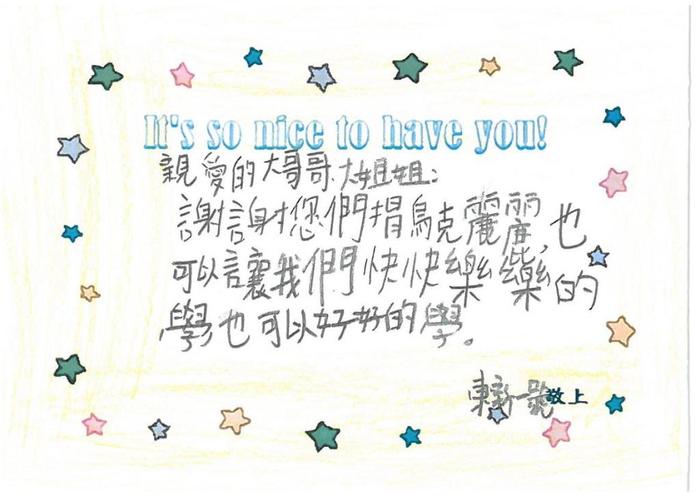 It's so nice to have you!
親愛的大哥哥、大姐姐:
謝謝您們捐烏克麗麗,也
可以讓我們快快樂樂的
學也可以好好的學。
敬上